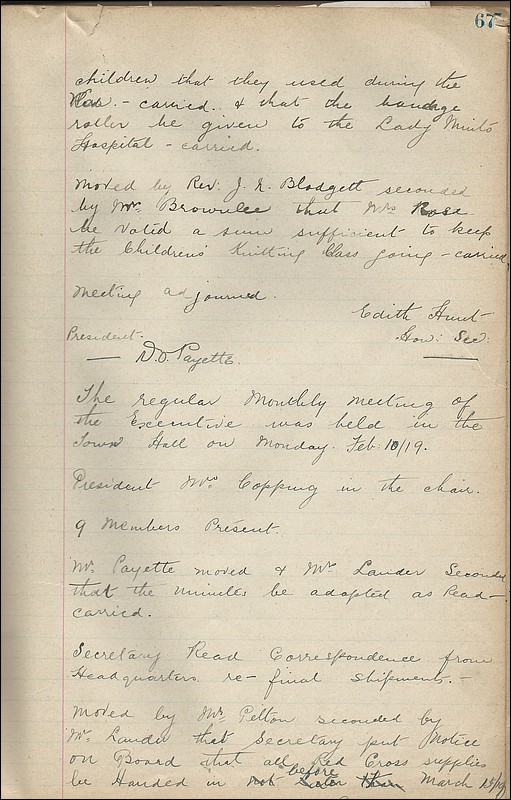 67
children that they used during the
War. - carried. & that the bandage
roller be given to the Lady Minto
Hospital - carried.
Moved by Rev: J. E. Blodgett seconded
by Mr. Brownlee that Mrs Rose
be voted a sum sufficient to keep
the Children's Knitting Class going - carried
Meeting adjourned.
Edith Hunt
Hon: Sec:
President.
— D.O. Payette. —
The regular Monthly Meeting of
the Executive was held in the
Town Hall on Monday. Feb. 10/19.
President Mrs Copping in the chair.
9 Members Present.
Mr. Payette moved & Mr. Lander Second
that the minutes be adapted as Read -
carried.
Secretary Read Correspondence from
Headquarters re- final shipments. -
Moved by Mrs. Pelton seconded by
Mr. Lander that Secretary put Notice
on Board that all Red Cross supplies
before
be Handed in not later than March 15/19